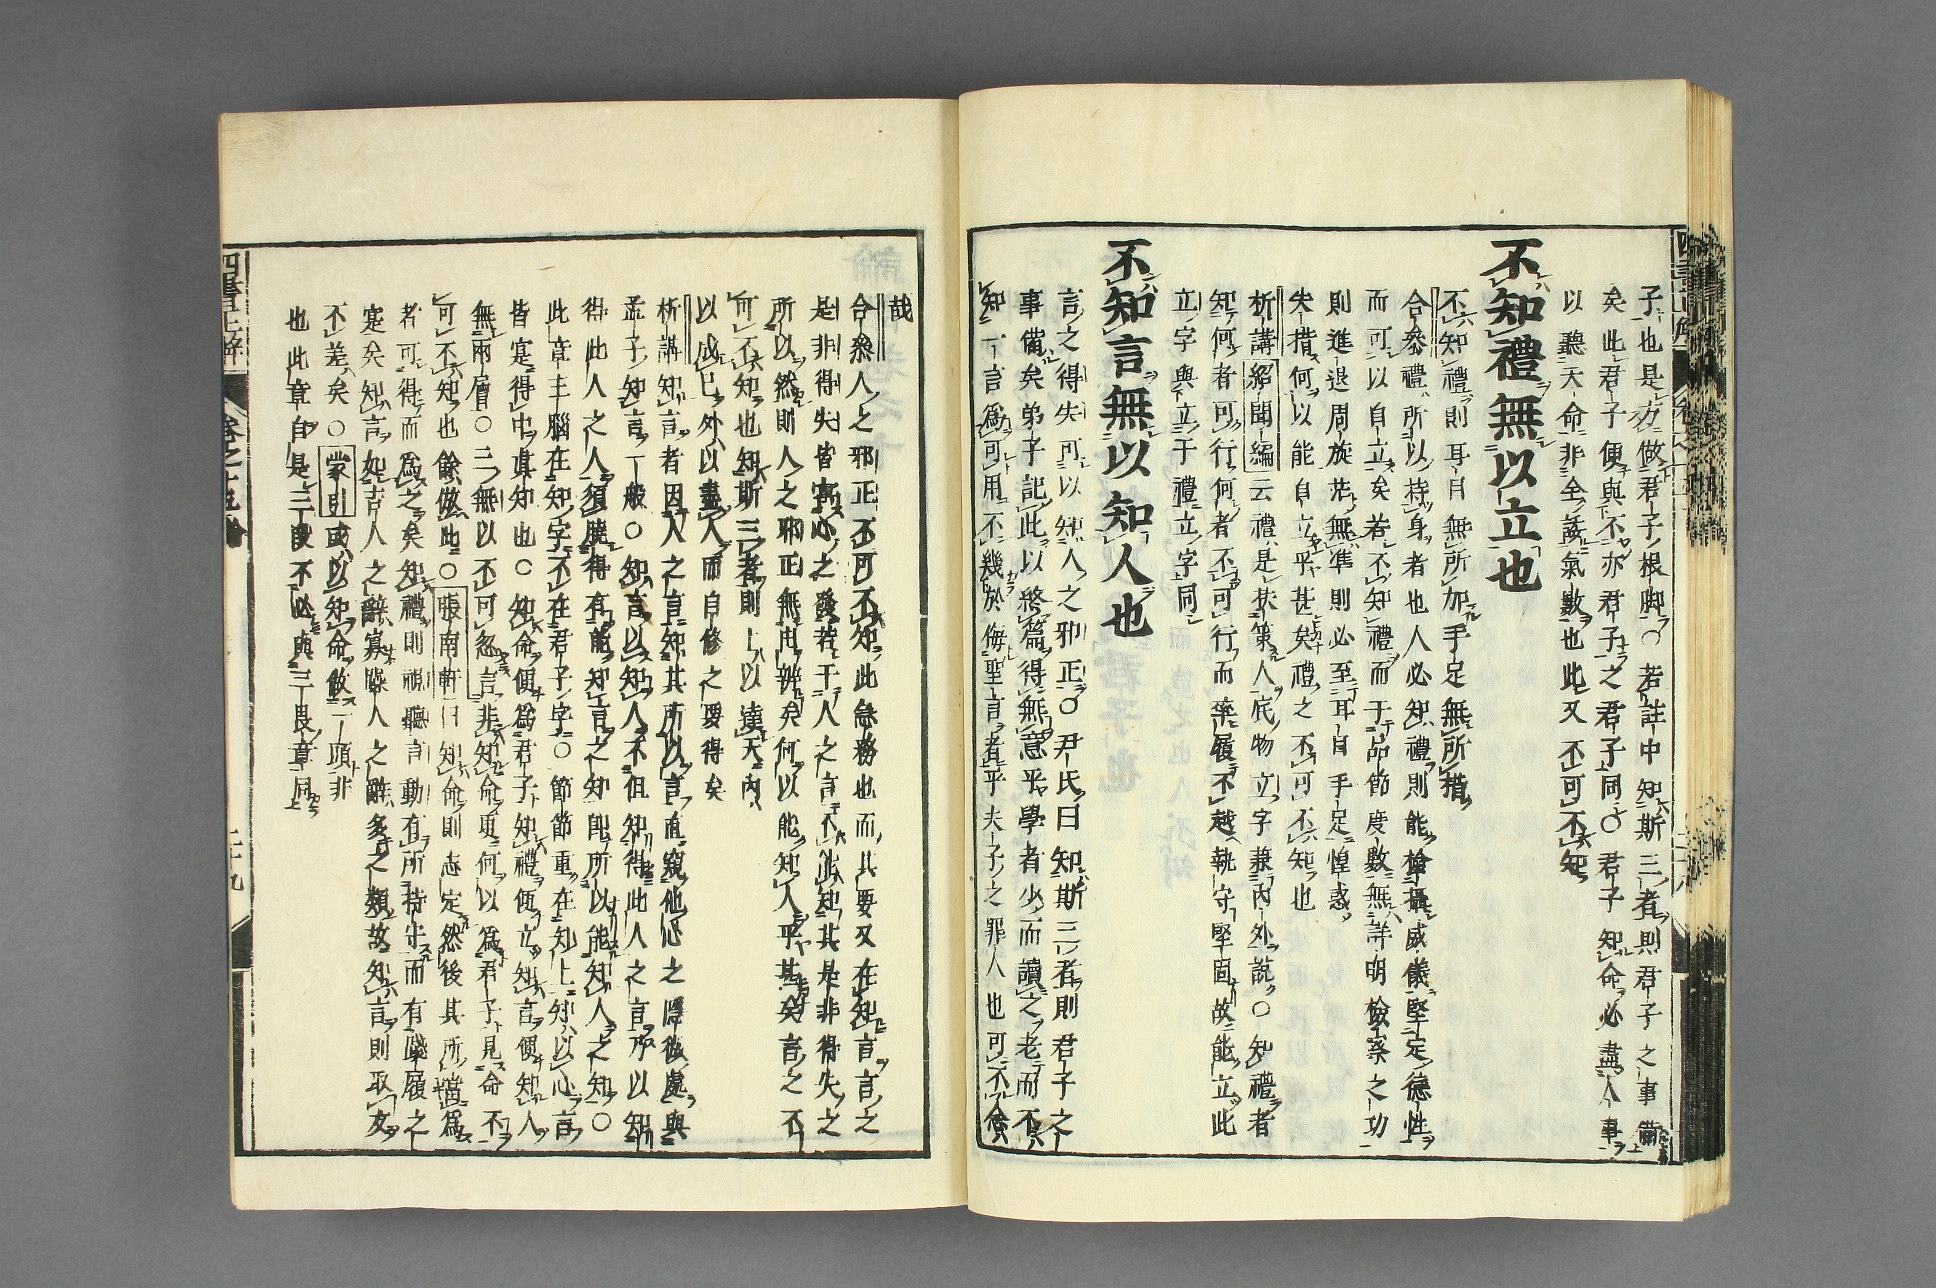 子也是方做君子根脚○若註中知斯三者則君子之事備
矣此君子便與不亦君子之君子同○君子知命必盡人事
以聽天命非全諉氣數也此又不可不知
不知禮無以立也
不知禮則耳目無所加手足無所措
合參禮所以持身者也人必知禮則能檢攝威儀堅定德性
而可以自立矣若不知禮而于品節度數無詳明檢察之功
則進退周旋茫無準則必至耳目手足惶惑
失措何以能自立乎甚矣禮之不可不知也
析講紹聞編云禮是扶策人底物立字兼內外說○知禮者
知何者可行何者不可行而率履不越執守堅固故能立此
立字與立于禮立字同
不知言無以知人也
言之得失可以知人之邪正○尹氏曰知斯三者則君子之
事備矣弟子記此以終篇得無意乎學者少而讀之老而不
知一言為可用不幾於侮聖言者乎夫子之罪人也可不念
哉
合參人之邪正不可不知此急務也而其要又在知言言之
是非得失皆害心之發若于人之言不能知其是非得失之
所以然則人之邪正無由辨矣何以能知人乎甚矣言之不
可不知也知斯三者則上以達天內
以成已外以盡人而自修之要得矣
析講知言者因人之言知其所以言直窺他心之隱微處與
孟子知言一般○知言以知人不但知得此人之言所以知
得此人之人須曉得有能知言之知即所以能知人之知○
此章主腦在知字不在君子字○節節重在知上知以心言
皆寔得中真知也○知命便為君子知禮便立知言便知人
無兩層○三無以不可忽言非知命更何以為君子見命不
可不知也餘倣此○張南軒曰知命則志定然後其所當為
者可得而為之矣知禮則視聽言動有所持守而有踐履之
寔矣知言如吉人之辭寡躁人之辭多之類故知言則取友
不差矣○蒙引或以知命做一頭非
也此章自是三段不必與三畏章同
四書正解
卷之十五
二十九